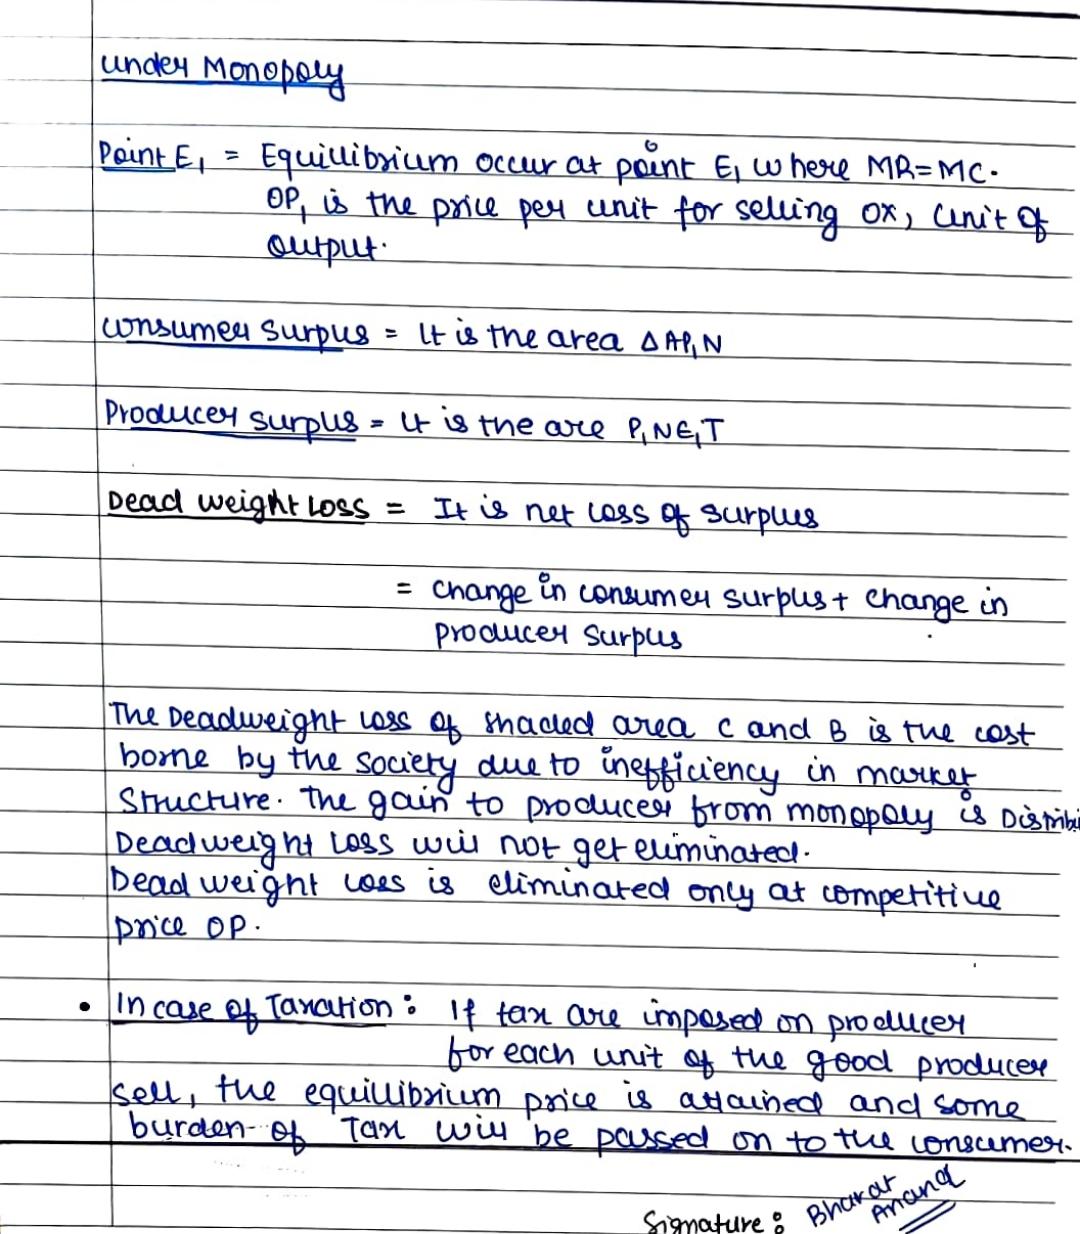 under Monopoly
Point E1 = Equillibrium occur at point E1 where MR=MC.
OP1 is the price per unit for selling OX1 unit of
output.
consumer Surpus = It is the area ΔAP1N
Producer surpus = It is the are P1NE1T
Dead weight Loss = It is net loss of surplus
= change in consumer surpus + change in
producer surpus
The Deadweight loss of shaded area C and B is the cost
borne by the society due to inefficiency in market
structure. The gain to producer from monopoly is
Deadweight loss will not get eliminated.
Dead weight loss is eliminated only at competitive
price OP.
• In case of Taxation: If tax are imposed on producer
for each unit of the good producer
sell, the equillibrium price is attained and some
burden of Tax will be passed on to the consumer.
Signature: Bharat
Anand